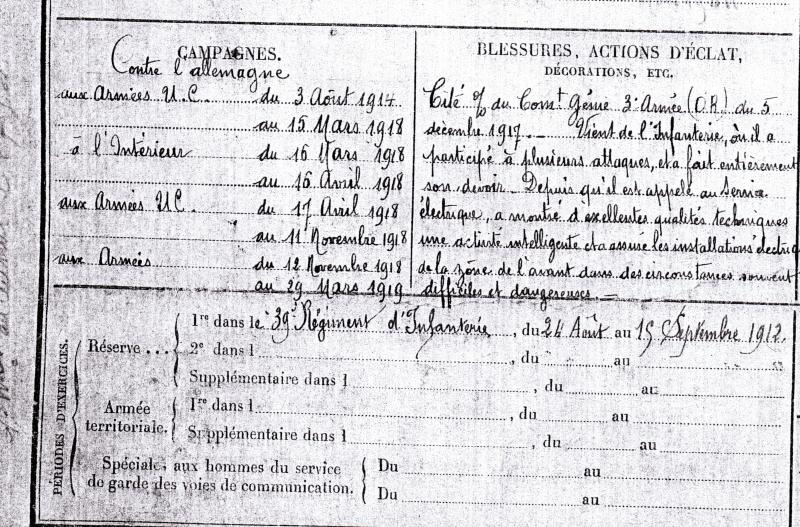 CAMPAGNES.
Contre l'allemagne
aux Armées U.C. du 3 Août 1914
au 15 Mars 1918
à l'Intérieur du 16 Mars 1918
au 16 Avril 1918
aux Armées U.C. du 17 Avril 1918
au 11 Novembre 1918
aux Armées du 12 Novembre 1918
au 29 Mars 1919
BLESSURES, ACTIONS D'ÉCLAT,
DÉCORATIONS, ETC.
Cité du Comt Génie 3e Armée (O.R.) du 5
décembre 1917. Vient de l'Infanterie, où il a
participé à plusieurs attaques, et a fait entièrement
son devoir. Depuis qu'il est appelé au Service
électrique, a montré d'excellentes qualités techniques
une activité intelligente et a assuré les installations électriq
de la zône de l'avant dans des circonstances souvent
difficiles et dangereuses. —
PÉRIODES D'EXERCICES.
Réserve ... 1re dans le 39e Régiment d'Infanterie, du 24 Août au 15 Septembre 1912.
2e dans l , du au
Supplémentaire dans l , du au
Armée territoriale. 1re dans l , du au
Supplémentaire dans l , du au
Spéciale aux hommes du service Du au
de garde des voies de communication. Du au